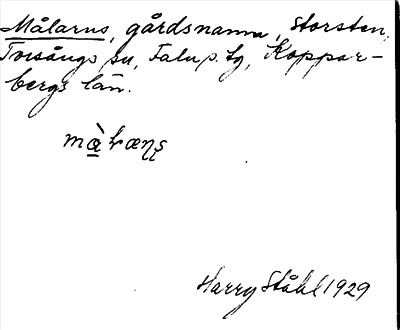 Målarns, gårdsnamn, Storsten,
Torsångs sn, Falu s. tg, Koppar-
bergs län.
Harry Ståhl 1929